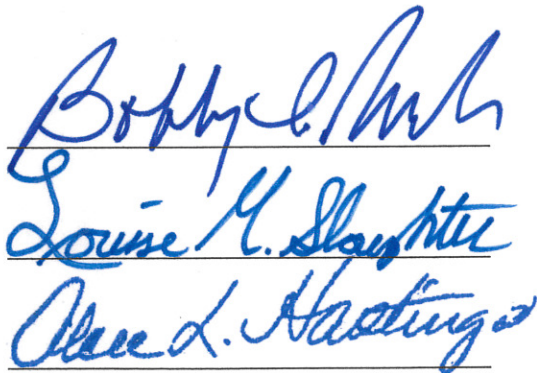 Bobby L. Rush
Louise M. Slaughter
Alcee L. Hastings